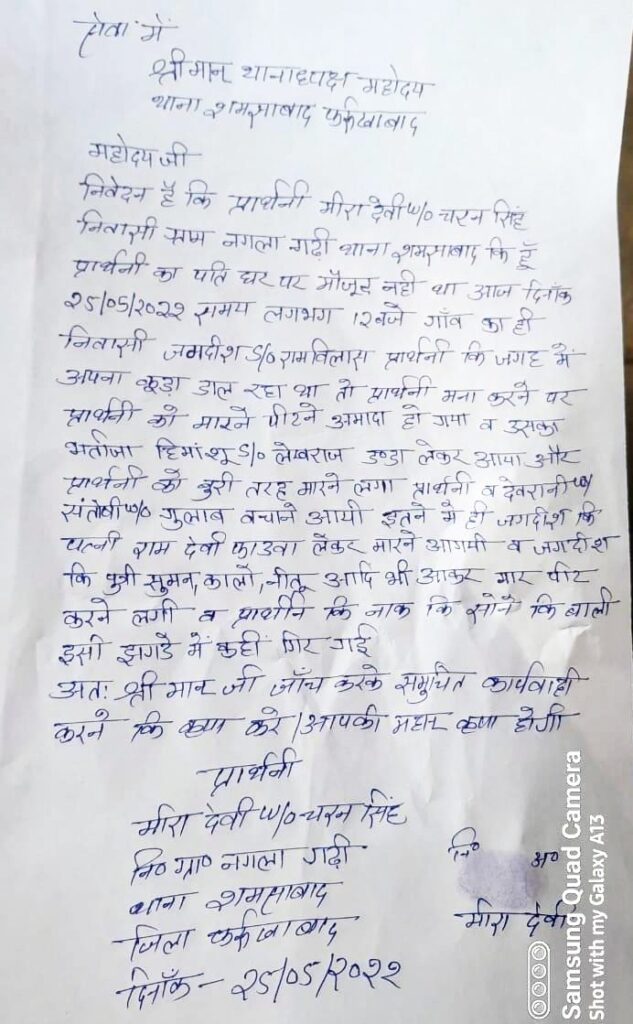 सेवा में
श्रीमान् थानाध्यक्ष महोदय
थाना शमसाबाद फर्रुखाबाद
महोदय जी
निवेदन है कि प्रार्थनी मीरा देवी w/o चरन सिंह
निवासी ग्राम नगला गढी थाना शमसाबाद कि हूँ
प्रार्थनी का पति घर पर मौजूद नही था आज दिनाँक
२५/०५/२०२२ समय लगभग 12 बजे गाँव का ही
निवासी जगदीश S/o रामविलास प्रार्थनी कि जगह में
अपना कूड़ा डाल रहा था तो प्रार्थनी मना करने पर
प्रार्थनी को मारने पीटने अमादा हो गया व उसका
भतीजा हिमांशू S/o लेखराज डण्डा लेकर आया और
प्रार्थनी को बुरी तरह मारने लगा प्रार्थनी व देवरानी w/o
संतोषी w/o गुलाब बचाने आयी इतने मे ही जगदीश कि
पत्नी राम देवी फाउवा लेकर मारने आगयी व जगदीश
कि पुत्री सुमन, कालो, नीतू आदि भी आकर मार पीट
करने लगी व प्रार्थीन कि नाक कि सोने कि बाली
इसी झगडे में कहीं गिर गई
अतः श्री मान जी जाँच करके समुचित कार्यवाही
करने कि कृपा करे / आपकी महान कृपा होगी
प्रार्थनी
मीरा देवी w/o चरन सिंह
नि० ग्रा० नगला गढी
थाना शमसाबाद
जिला फर्रुखाबाद
दिनाँक - २५/०५/२०२२
नि० अ०
मीरा देवी
Samsung Quad Camera
Shot with my Galaxy A13